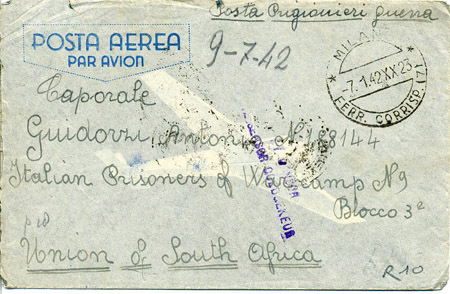 Posta Prigionieri guerra
POSTA AEREA
PAR AVION
9-7-42
MILA
-7.1.42XX 23
FERR. CORRISP. (7)
Caporale
Antonio N. 188144
Italian Prisoners of War camp N9
Blocco 3ª
Union of South Africa
R10